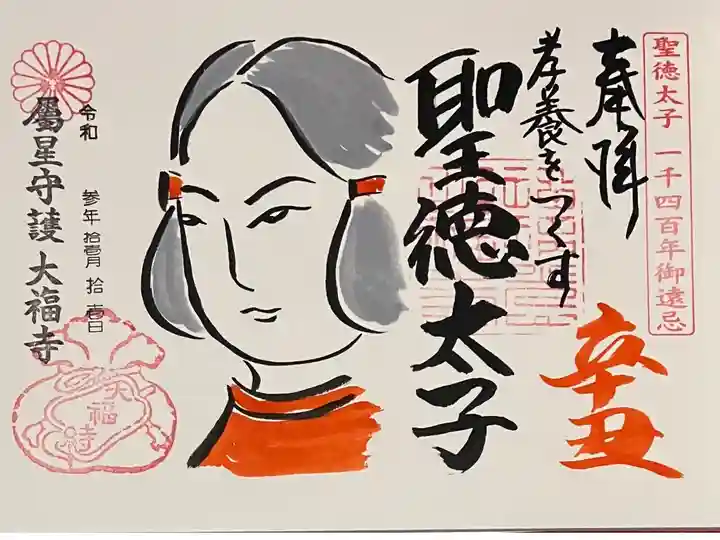 聖徳太子 一千四百年御遠忌
奉拝
辛丑
孝養をつくす
聖徳太子
令和 参年 拾壹月 拾壹日
屬星守護 大福寺
大福寺